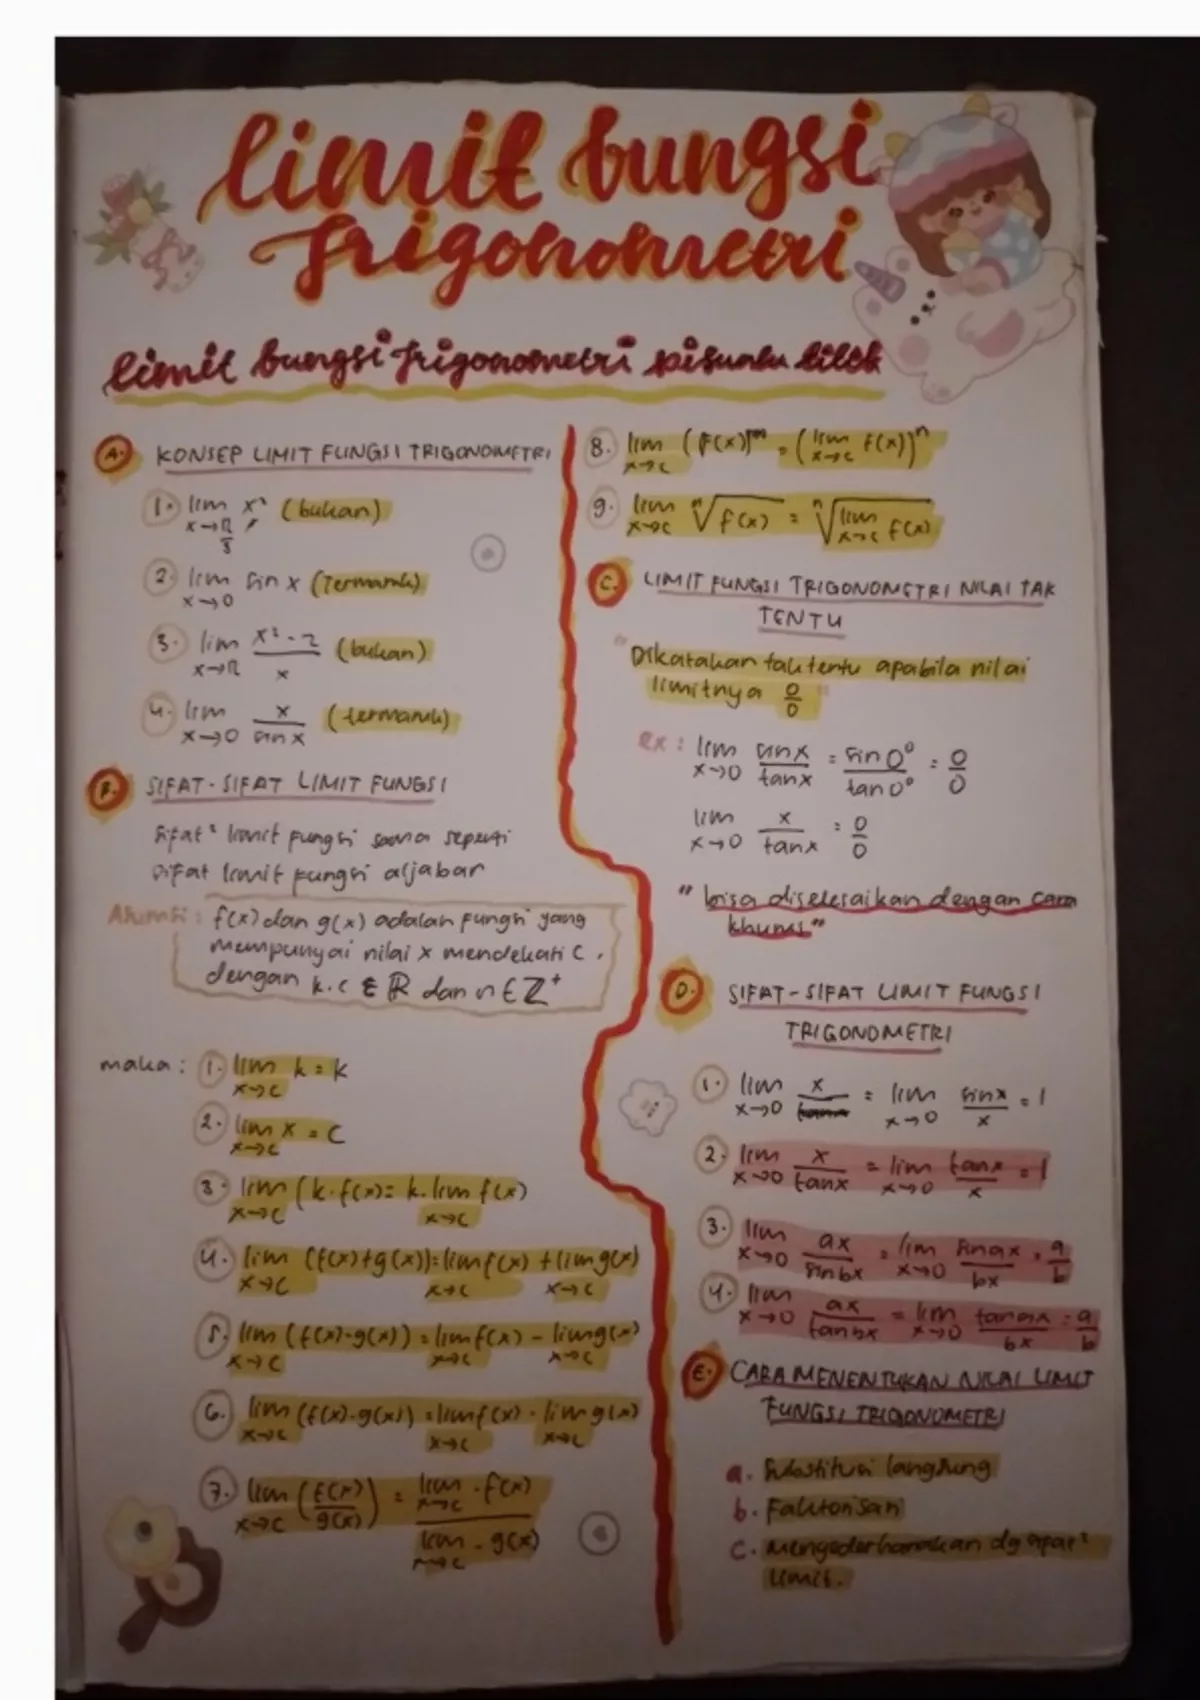 limit fungsi
Trigonometri
limit fungsi trigonometri disuatu titik
A. KONSEP LIMIT FUNGSI TRIGONOMETRI
1. lim x² (bukan)
x→π/3
2. lim sin x (Termasuk)
x→0
3. lim x²-2/x (bukan)
x→π
4. lim x/sin x (termasuk)
x→0
B. SIFAT-SIFAT LIMIT FUNGSI
Sifat² limit fungsi sama seperti
sifat limit fungsi aljabar
Asumsi: f(x) dan g(x) adalah fungsi yang
mempunyai nilai x mendekati c,
dengan k.c ∈ ℝ dan n ∈ ℤ⁺
maka: 1. lim k = k
x→c
2. lim x = c
x→c
3. lim (k.f(x) = k. lim f(x)
x→c x→c
4. lim (f(x)+g(x)) = lim f(x) + lim g(x)
x→c x→c x→c
5. lim (f(x)-g(x)) = lim f(x) - lim g(x)
x→c x→c x→c
6. lim (f(x).g(x)) = lim f(x) . lim g(x)
x→c x→c x→c
7. lim (f(x)/g(x)) = lim . f(x)
x→c x→c
lim . g(x)
x→c
8. lim (f(x))ⁿ = (lim f(x))ⁿ
x→c x→c
9. lim ⁿ√f(x) = ⁿ√lim f(x)
x→c x→c
C. LIMIT FUNGSI TRIGONOMETRI NILAI TAK
TENTU
"Dikatakan tak tentu apabila nilai
limitnya 0/0"
ex: lim sin x/tan x = sin 0°/tan 0° = 0/0
x→0
lim x/tan x = 0/0
x→0
"bisa diselesaikan dengan cara
khusus"
D. SIFAT-SIFAT LIMIT FUNGSI
TRIGONOMETRI
1. lim x/ = lim sin x/x = 1
x→0 x→0
2. lim x/tan x = lim tan x/x = 1
x→0 x→0
3. lim ax/sin bx = lim sin ax/bx = a/b
x→0 x→0
4. lim ax/tan bx = lim tan ax/bx = a/b
x→0 x→0
E. CARA MENENTUKAN NILAI LIMIT
FUNGSI TRIGONOMETRI
a. Substitusi langsung
b. Faktorisasi
c. Mengederhanakan dg sifat²
limit.